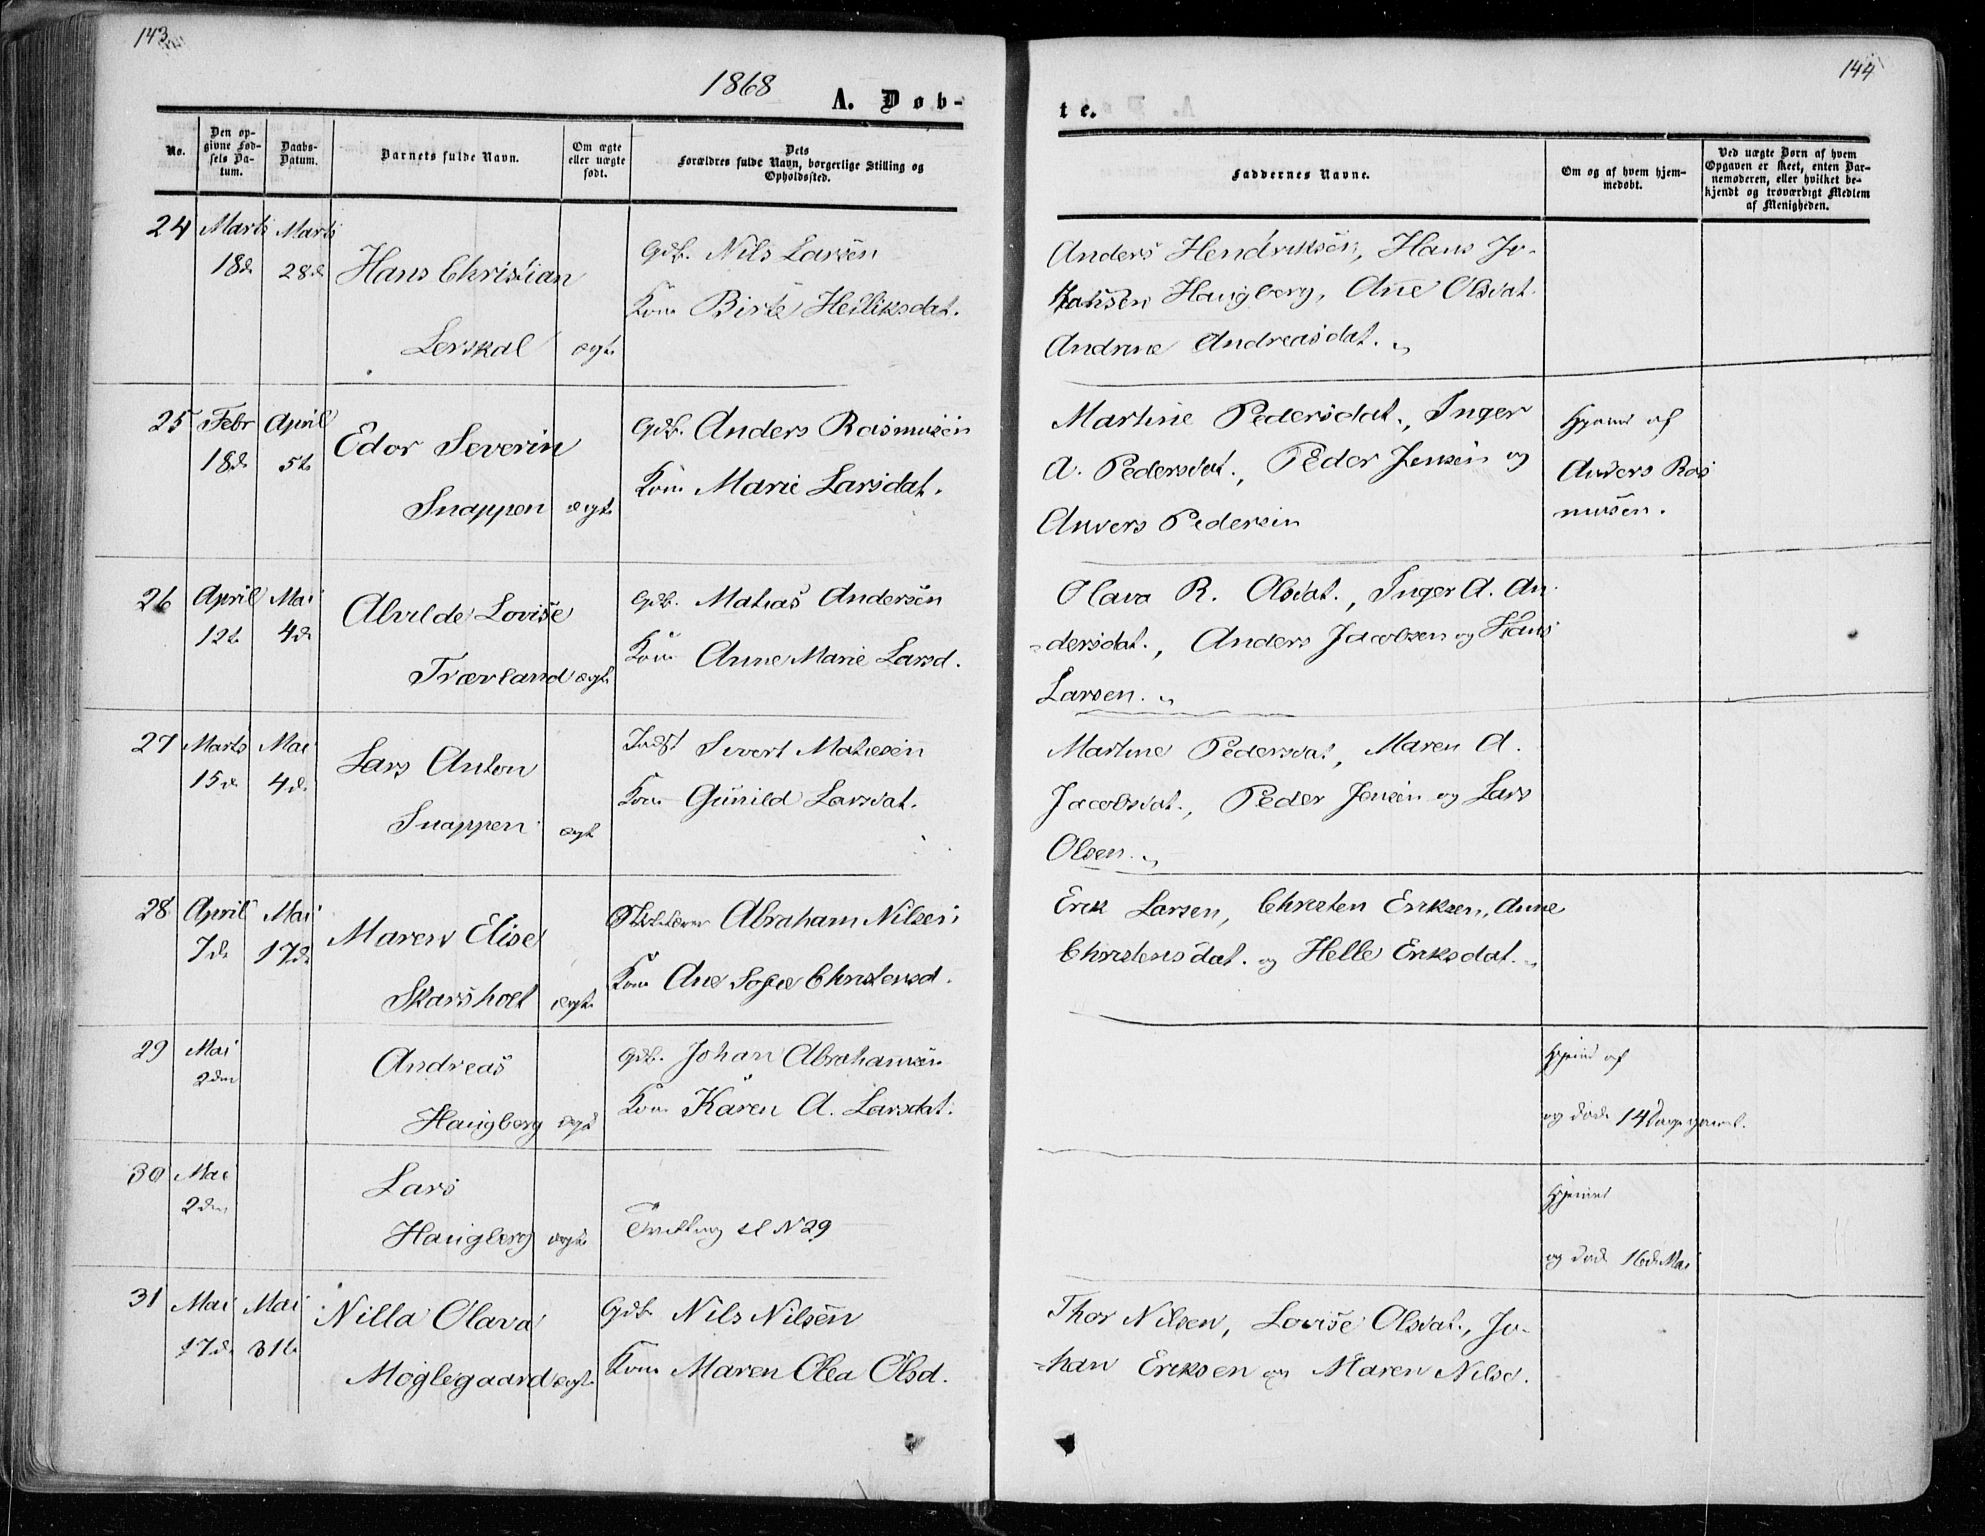 143
144
1868
A. Døb-
te.
No.
Den op-
givne Fød-
sels Da-
tum.
Daabs-
Datum.
Barnets fulde Navn.
Om ægte
eller uægte
født.
Dets
Forældres fulde Navn, borgerlige Stilling og
Opholdssted.
Faddernes Navne.
Om og af hvem hjem-
medøbt.
Ved uægte Børn af hvem
Opgaven er skeet, enten Bar-
nemoderen, eller hvilket be-
kjendt og troværdigt Medlem
af Menigheden.
24 Marts Marts
18d 28d Hans Christian
Lerskal ægte
Gdb. Nils Larsen
Kone Birte Heiliksdat.
Anders Hendriksen, Hans Jo-
hansen Haugberg, Ane Olsdat.
Andrine Andreasdat.
25 Febr April
18d 5te Edor Severin
Snappen ægte
Gdb. Anders Rasmusen
Kone Marie Larsdat.
Martine Pedersdat., Inger
A. Pedersdat., Peder Jensen og
Anders Pedersen
Hjemd af
Anders Ras
musen.
26 April Mai
12t 4d Alvilde Lovise
Træerland ægte
Gdb. Matias Andersen
Kone Anne Marie Larsd.
Olava R. Olsdat., Inger A. An-
dersdat., Anders Jacobsen og Hans
Larsen.
27 Marts Mai
15d 4d Lars Anton
Snappen ægte
Indst Sivert Matiesen
Kone Gunild Larsdat.
Martine Pedersdat, Maren A.
Jacobsdat., Peder Jensen og Lars
Olsen.
28 April Mai
7d 17d Maren Elise
Skarsholt ægte
Abraham Nilsen
Kone Ane Sofie Christensd.
Erik Larsen, Christen Eriksen, Anne
Christensdat. og Helle Eriksdat.
29 Mai
2den Andreas
Haugberg ægte
Gdb. Johan Abrahamsen
Kone Karen A. Larsdat.
Hjemd af
og døde 14 Dage gammel.
30 Mai
2den Lars
Haugberg ægte
Tvilling til N 29
Hjemd
og død 16de Mai
31 Mai Mai
17d 31te Nilla Olava
Moglegaard ægte
Gdb. Nils Nilsen
Kone Maren Olea Olsd.
Thor Nilsen, Lovise Olsdat., Jo-
han Eriksen og Maren Nilsd.